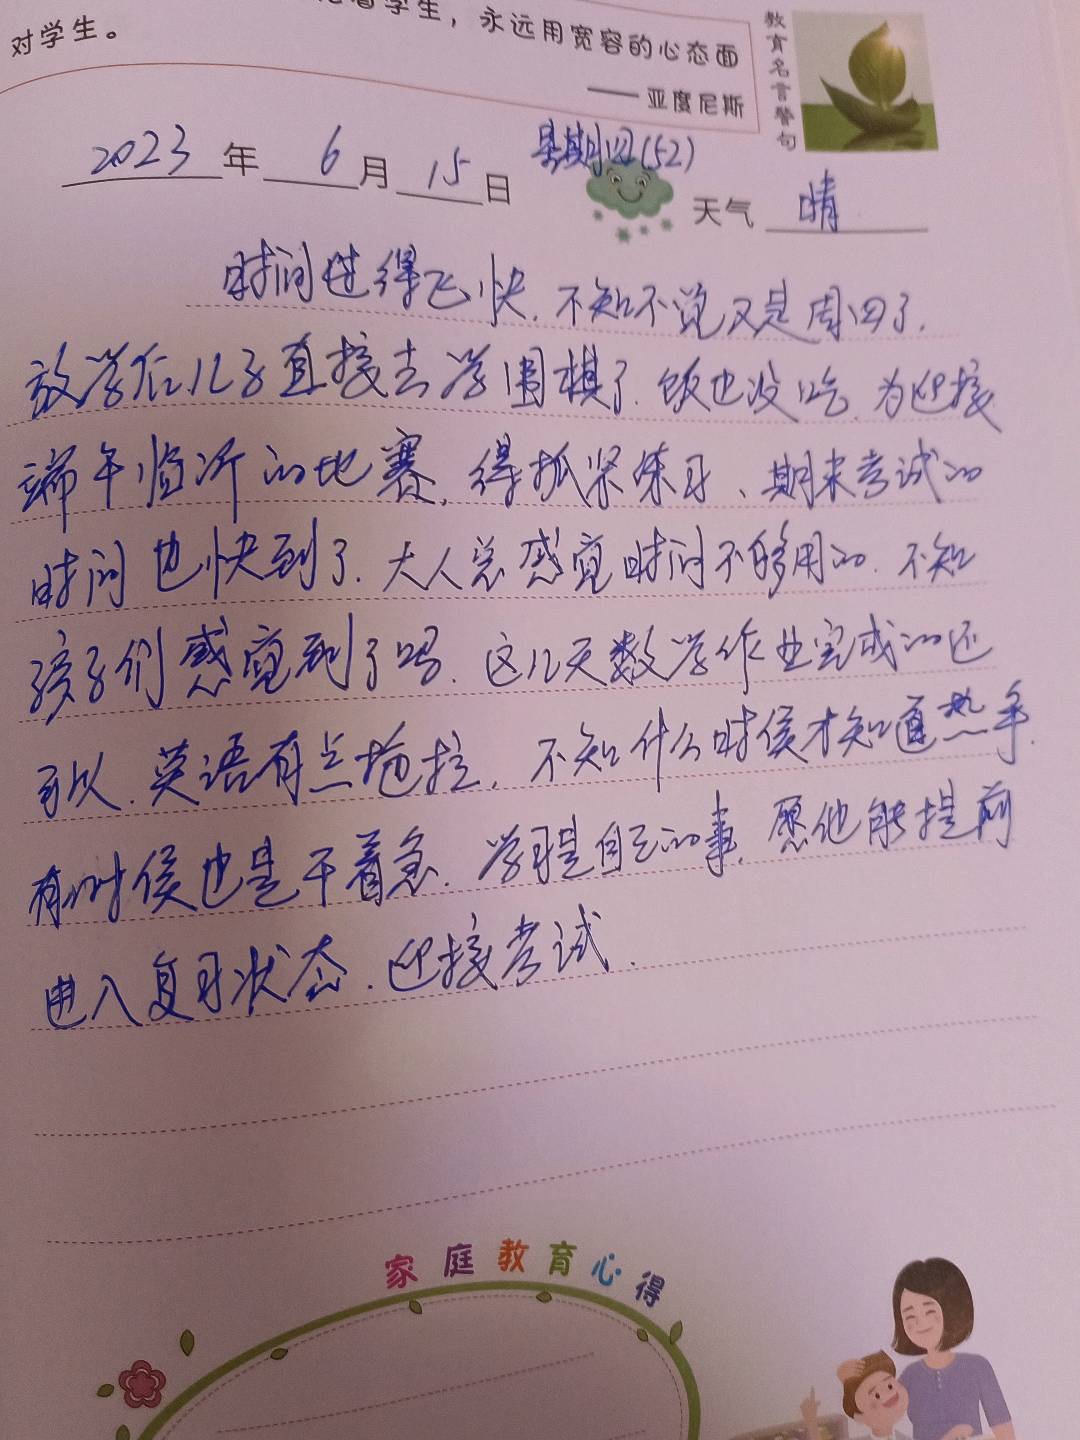 着学生，永远用宽容的心态面
对学生。
——亚度尼斯
教育名言警句
2023年6月15日 星期四(52) 天气 晴
时间过得飞快.不知不觉又是周四了.
放学后儿子直接去学围棋了.饭也没吃.为迎接
端午临沂的地赛.得抓紧练习、期末考试的
时间也快到了.大人总感觉时间不够用的.不知
孩子们感觉到了吗.这几天数学作业完成的还
可以.英语有点拖拉.不知什么时侯才知道热手.
有的时侯也是干着急.学习是自己的事.愿他能提前
进入复习状态.迎接考试.
家庭教育心得